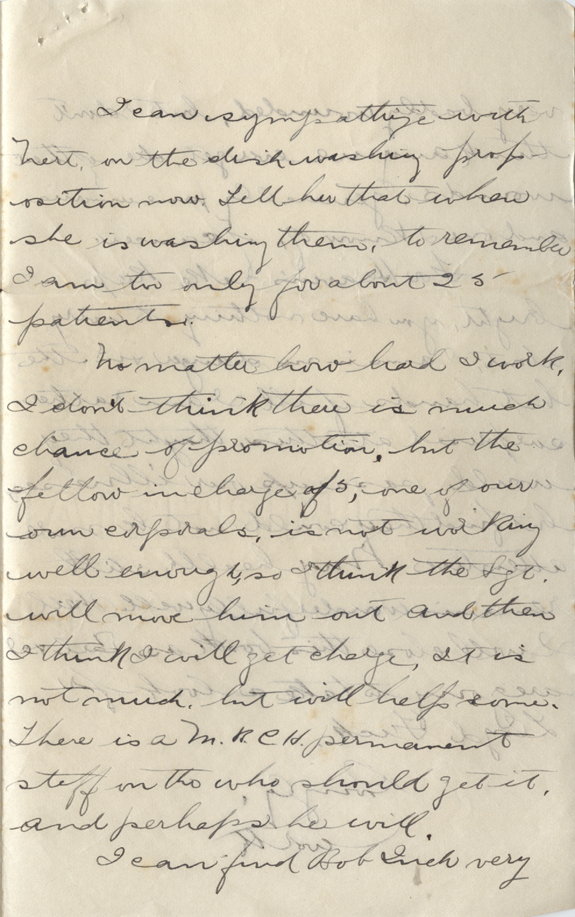 I can sympathize with
Nert, on the dish washing prop-
osition now. Tell her that when
she is washing them, to remember
I am too only for about 25
patients.
No matter how hard I work,
I don't think there is much
chance of promotion, but the
fellow in charge of 5, one of our
own corporals, is not working
well enough, so I think the Sgt.
will move him out and then
I think I will get charge, It is
not much, but will help some.
There is a M. R. C. H. permanent
staff on tho who should get it,
and perhaps he will.
I can find Bob Inch very